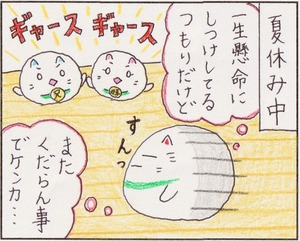 夏休み中
一生懸命に
しつけしてる
つもりだけど
ギャース
ギャース
すんっ
また
くだらん事
でケンカ・・・